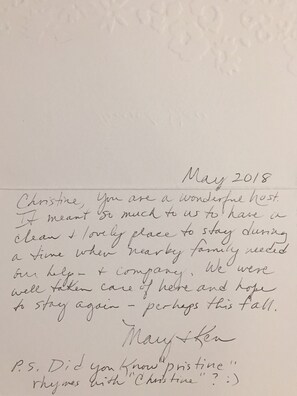 May 2018
Christine, You are a wonderful host.
It meant so much to us to have a
clean & lovely place to stay during
a time when nearby family needed
our help - & company. We were
well taken care of here and hope
to stay again - perhaps this fall.
Mary & Ken
P.S. Did you know "pristine"
rhymes with "Christine"? :)